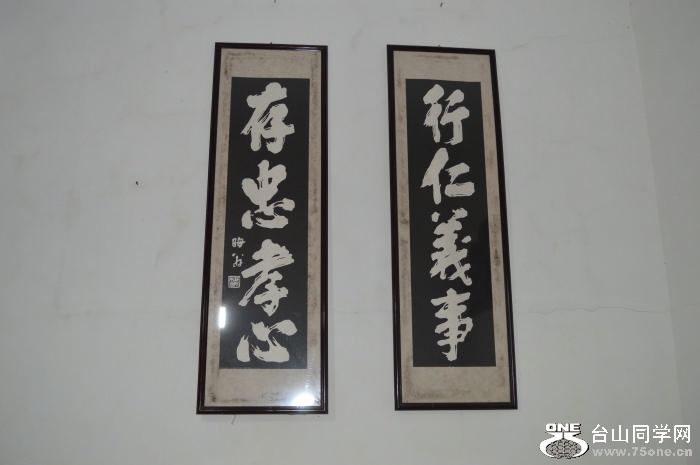 行仁義事
存忠孝心
晦翁
ONE
台山同学网
www.75one.cn